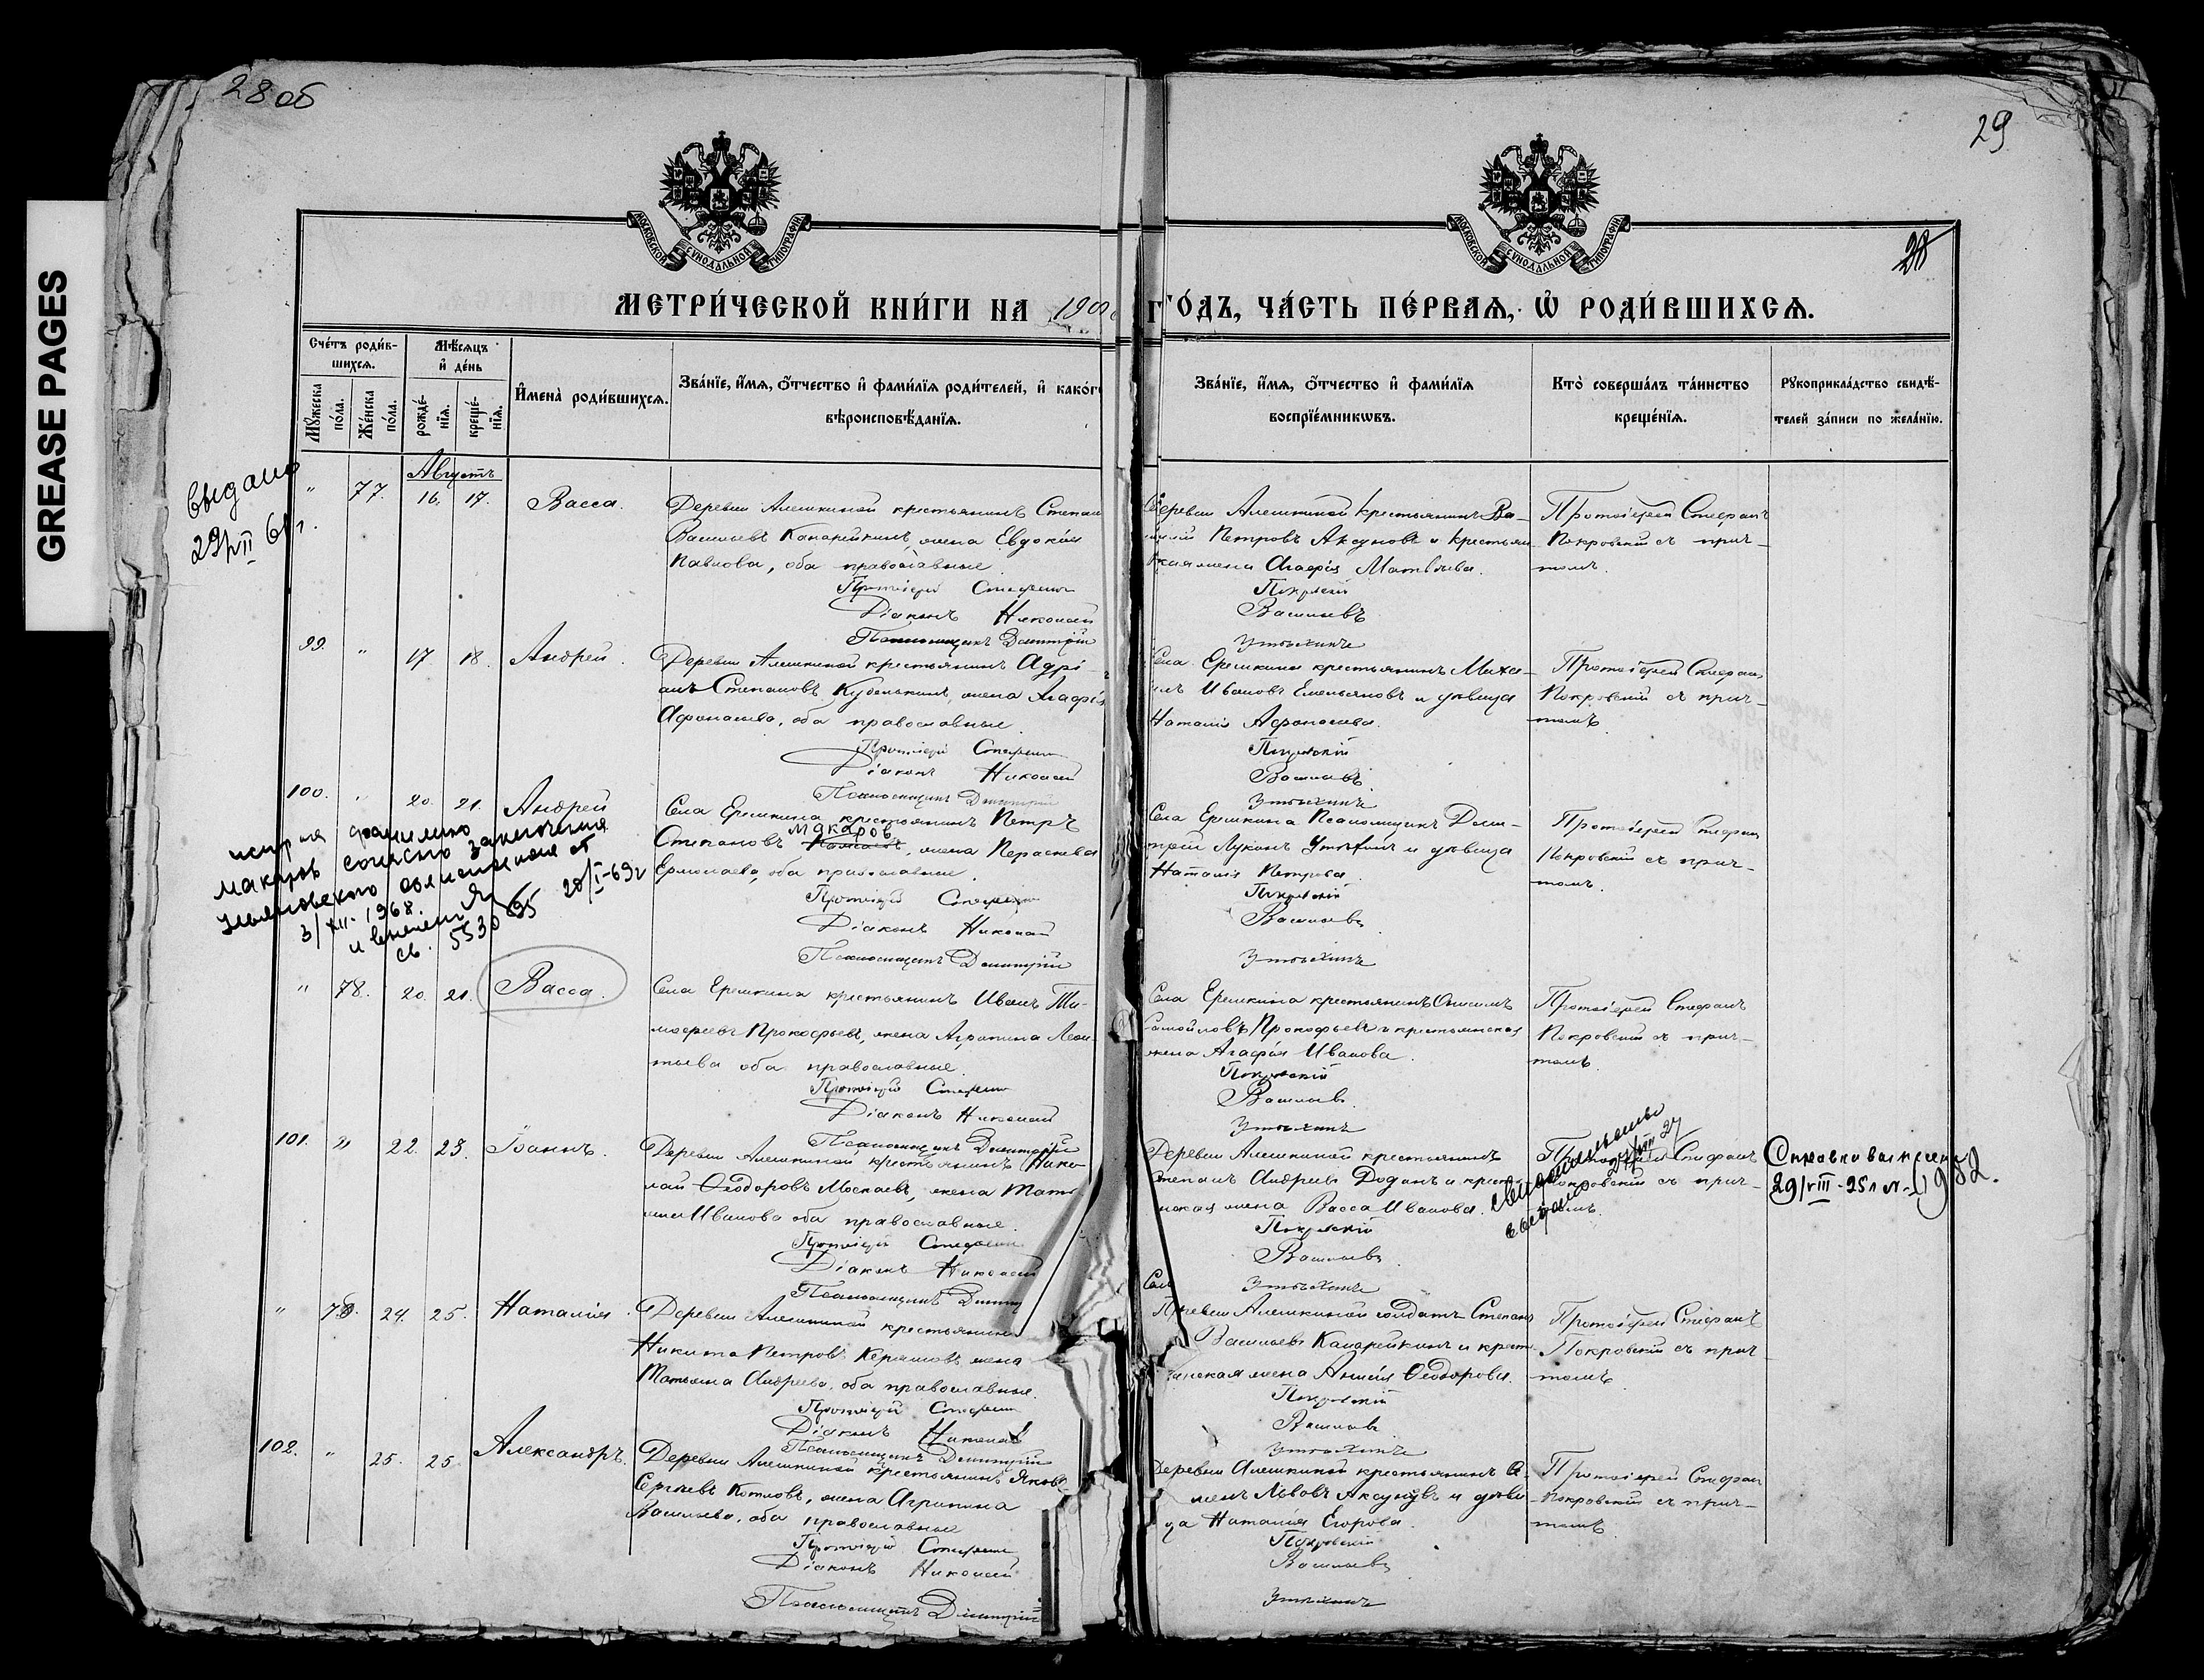 28 об
29
28
GREASE PAGES
МОСКОВСКОЙ СѴНОДАЛЬНОЙ ТИПОГРАФІИ
МОСКОВСКОЙ СѴНОДАЛЬНОЙ ТИПОГРАФІИ
МЕТРИ́ЧЕСКОЙ КНИ́ГИ НА 190 ГО́ДЪ, ЧА́СТЬ ПЕ́РВАѦ, Ѡ҆ РОДИ́ВШИХСѦ.
Сче́тъ роди́в-
шихсѧ.
Мꙋ́жеска по́ла.
Же́нска по́ла.
Мѣ́сѧцъ
и҆ де́нь
рожде́-
нїѧ.
креще́-
нїѧ.
И҆мена̀ роди́вшихсѧ.
Зва́нїе, и҆́мѧ, ѻ҆́тчество и҆ фами́лїѧ роди́телей, и҆ како́гѡ
вѣроисповѣ́данїѧ.
Зва́нїе, и҆́мѧ, ѻ҆́тчество и҆ фами́лїѧ
воспрїе́мникѡвъ.
Кто̀ соверша́лъ та́инство
креще́нїѧ.
Рꙋкоприкла́дство свидѣ́-
телей за́писи по жела́нїю.
Августъ
выдано
" 77. 16. 17. Васса.
Деревни Алешкиной крестьянинъ Степан
Васильевъ Канарейкинъ, жена Евдокія
Павлова, оба православные.
Протоіерей Стефанъ
Діаконъ Николай
Псаломщикъ Димитрій
Деревни Алешкиной крестьянинъ Ва-
силій Петровъ Аксуновъ и крестьян
ская жена Агафія Матвѣева.
Покровскій
Васильевъ
Утѣхинъ
Протоіерей Стефанъ
Покровскій съ прич-
томъ.
99. " 17 18. Андрей.
Деревни Алешкиной крестьянинъ Адрі-
анъ Степановъ Кубенькинъ, жена Агафія
Афонасьева, оба православные.
Протоіерей Стефанъ
Діаконъ Николай
Псаломщикъ Димитрій
Села Ерешкина крестьянинъ Миха-
илъ Ивановъ Емельяновъ и дѣвица
Наталія Афонасьева.
Покровскій
Васильевъ
Утѣхинъ
Протоіерей Стефанъ
Покровскій съ прич-
томъ.
100. " 20. 21. Андрей
Села Ерешкина крестьянинъ Петръ
Макаров
Степановъ , жена Параскева
Ермолаева, оба православные.
Протоіерей Стефанъ
Діаконъ Николай
Псаломщикъ Димитрій
фамилию
Макаров согласно заключения
Ульяновского облисполкома от
3/XII-1968
5530 28/I-69г
Села Ерешкина Псаломщикъ Дими-
трій Лукинъ Утѣхинъ и дѣвица
Наталія Петрова.
Покровскій
Васильевъ
Утѣхинъ
Протоіерей Стефанъ
Покровскій съ прич-
томъ.
" 78. 20. 21. Васса.
Села Ерешкина крестьянинъ Иванъ Ти-
мофеевъ Прокофьевъ, жена Агрипина Леон-
тьева оба православные.
Протоіерей Стефанъ
Діаконъ Николай
Псаломщикъ Димитрій
Села Ерешкина крестьянинъ Онисимъ
Самойловъ Прокофьевъ и крестьянская
жена Агафія Иванова.
Покровскій
Васильевъ
Утѣхинъ
Протоіерей Стефанъ
Покровскій съ прич-
томъ.
101. " 22. 23. Іоаннъ.
Деревни Алешкиной крестьянинъ Нико-
лай Ѳеодоровъ Москаевъ, жена Тать
яна Иванова оба православные.
Протоіерей Стефанъ
Діаконъ Николай
Псаломщикъ Димитр
Деревни Алешкиной крестьянинъ
Степанъ Андреевъ Доданъ и крест
нская жена Васса Иванова.
Покровскій
Васильевъ
Утѣхинъ
Протоіерей Стефанъ
Покровскій съ прич-
томъ.
Свидетельство
выдано
Справка выписана
29/VIII-25 1952.
" 79. 24. 25. Наталія.
Деревни Алешкиной крестьянинъ
Никита Петровъ Керяшовъ жена
Татьяна Андреева, оба православные.
Протоіерей Стефанъ
Діаконъ Николай
Псаломщикъ Димитрій
Деревни Алешкиной солдатъ Степанъ
Васильевъ Канарейкинъ и крест
янская жена Анисія Ѳеодорова.
Покровскій
Васильевъ
Утѣхинъ
Протоіерей Стефанъ
Покровскій съ прич
томъ.
102. " 25. 25. Александръ.
Деревни Алешкиной крестьянинъ Яковъ
Сергѣевъ Котловъ, жена Агрипина
Васильева, оба православные
Протоіерей Стефанъ
Діаконъ Николай
Псаломщикъ Димитрій
Деревни Алешкиной крестьянинъ Се-
менъ Львовъ Аксуновъ и дѣви
ца Наталія Егорова.
Покровскій
Васильевъ
Утѣхинъ
Протоіерей Стефанъ
Покровскій съ прич-
томъ.